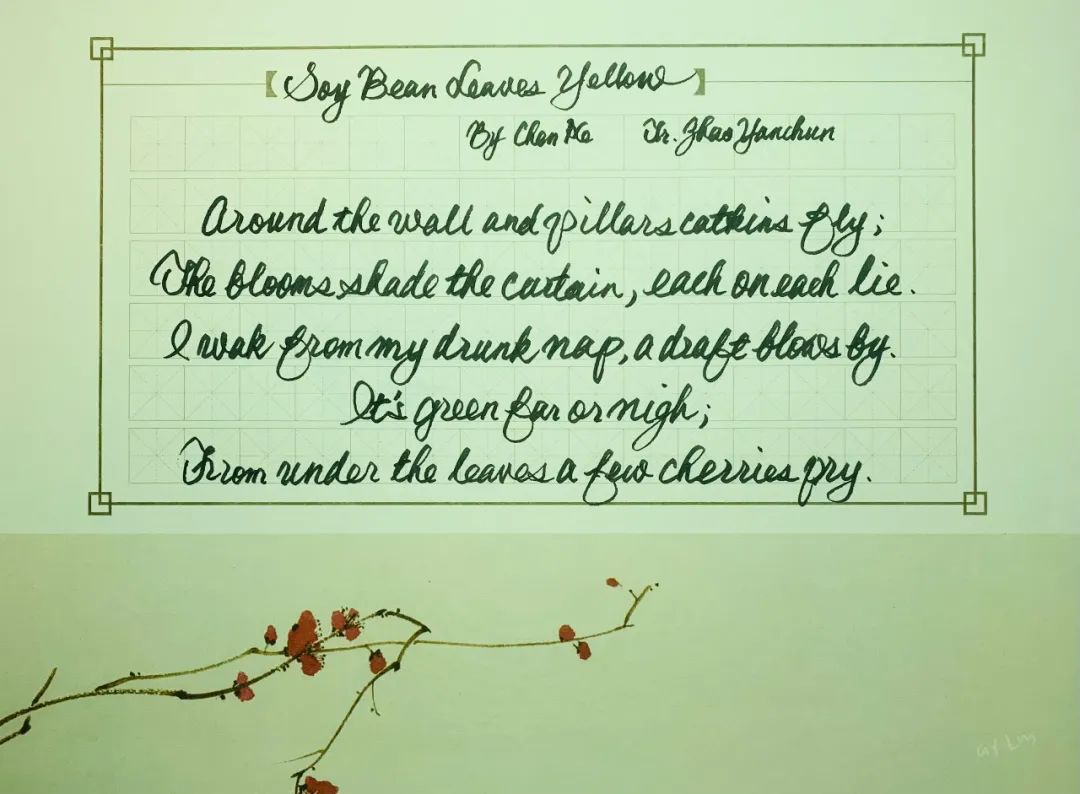 【Soy Bean Leaves Yellow】
By Chen He Tr. Zhao Yanchun
Around the wall and pillars catkins fly;
The blooms shade the curtain, each on each lie.
I wak from my drunk nap, a draft blows by.
It's green far or nigh;
From under the leaves a few cherries pry.